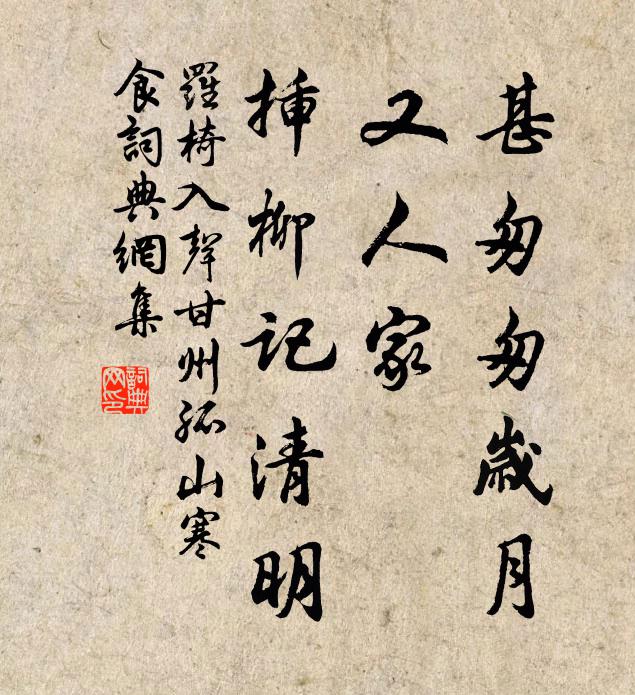 甚匆匆歲月
又人家
揷柳記清明
羅椅入聲甘州孤山寒
食詞典網集
詞典網印